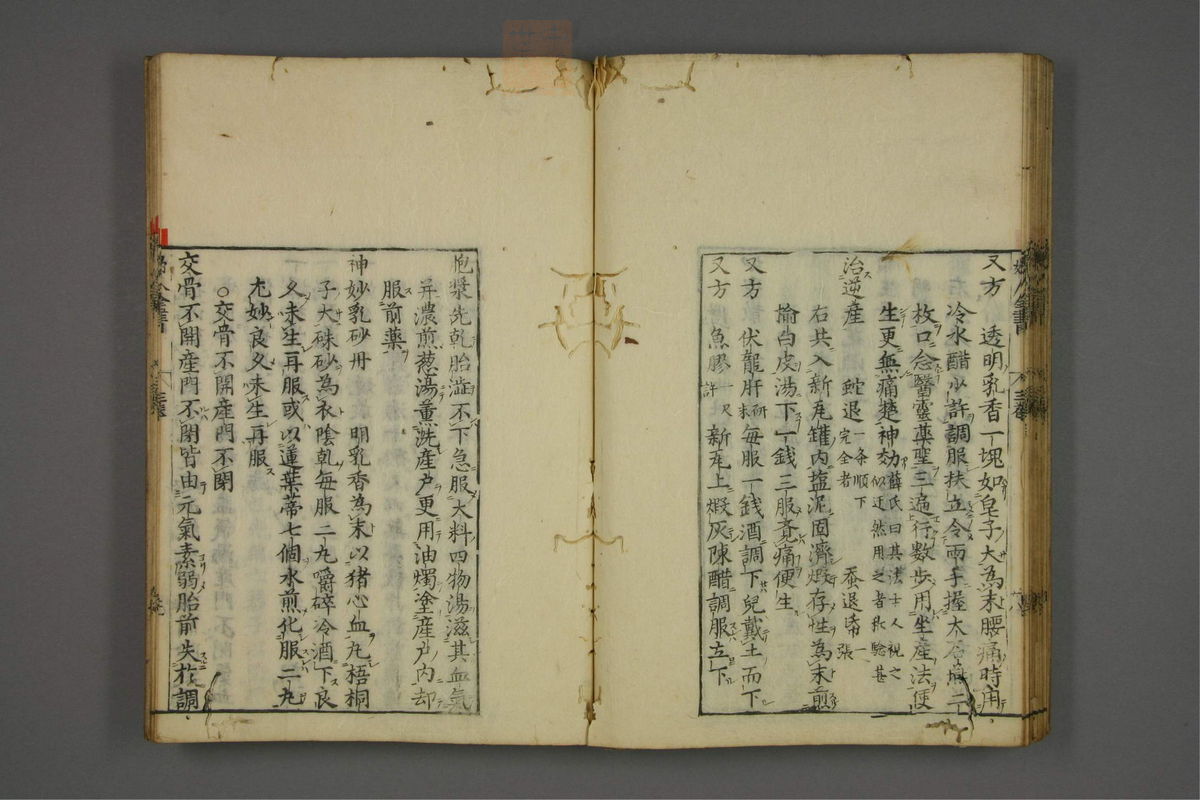 又方　透明乳香一塊如皂子大為末腰痛時用
冷水醋少許調服扶立令兩手握大石燕二
枚口念醫靈藥聖三遍行数步用坐産法便
生更無痛楚神効薛氏曰其法士人視之似迂然用之者秋驗甚
治逆産　蛇退一条順下完全者　蚕退帋一張
右共入新瓦罐内塩泥固濟煅存性為末煎
榆白皮湯下一錢三服覺痛便生
又方　伏龍肝研末毎服一錢酒調下兒戴土而下
又方　魚膠一尺許新瓦上煅灰陳醋調服立下
胞漿先乾胎澁不下急服大料四物湯滋其血氣
并濃煎葱湯薰洗産户更用油燭塗産户内却
服前藥
神妙乳砂丹　明乳香為末以猪心血丸梧桐
子大硃砂為衣陰乾毎服二丸嚼碎冷酒下良
久未生再服或以蓮葉蒂七個水煎化服二丸
尤妙良久未生再服
○交骨不開産門不閉
交骨不開産門不閉皆由元氣素弱胎前失於調